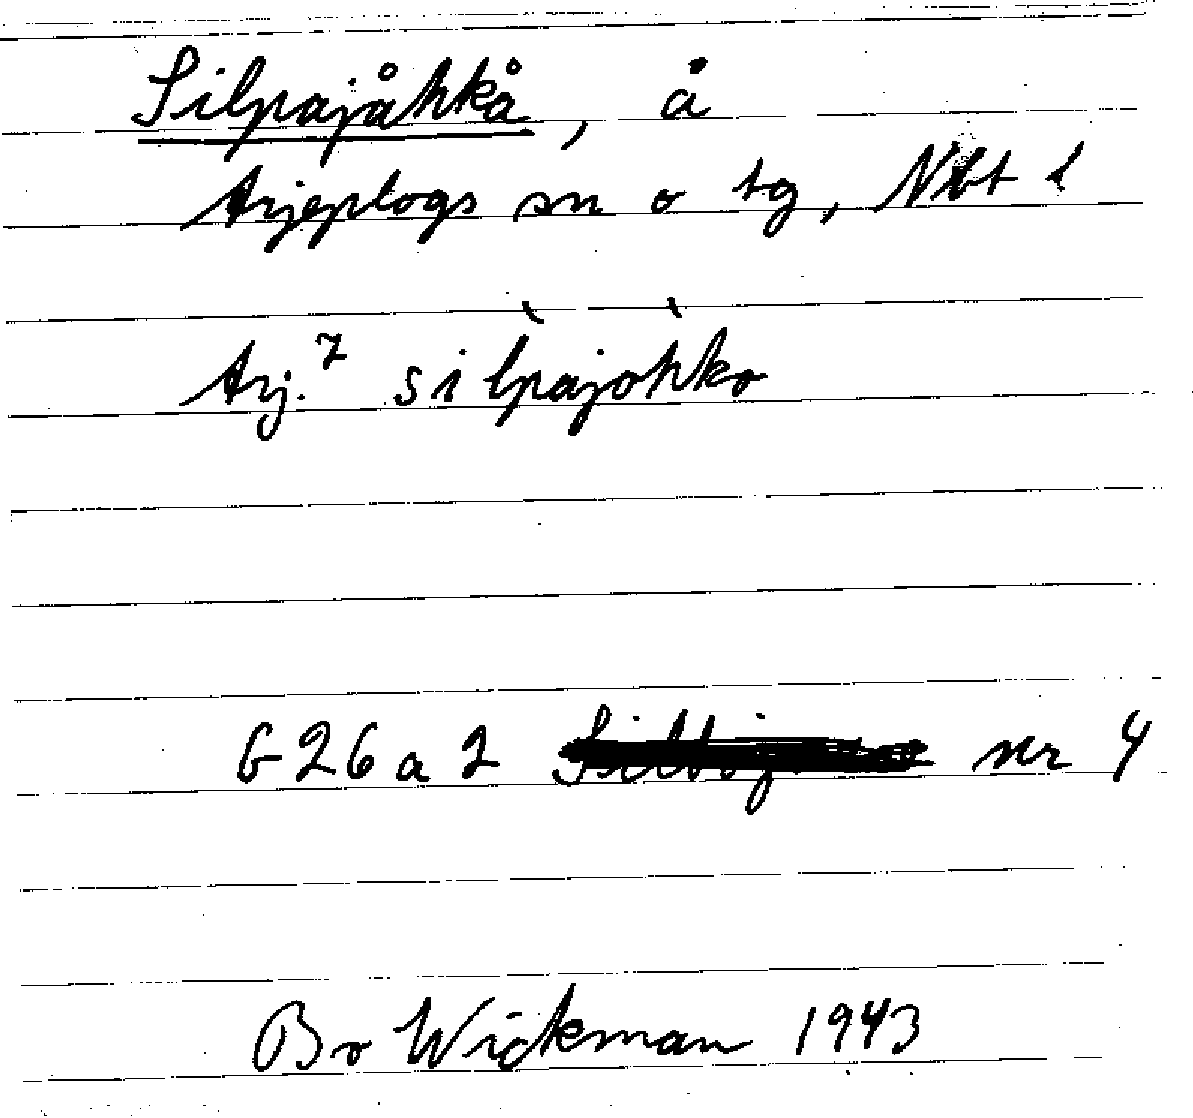 Silpajåhkå, å
Arjeplogs sn o tg, Nbt l
Arj.⁷ sìlpajòhko
G 26 a 2 nr 4
Bo Wickman 1943